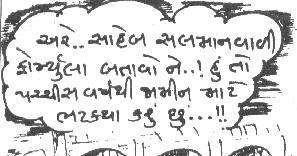 અરે.. સાહેબ સલમાનવાળી
ફોર્મ્યુલા બતાવો ને..! હું તો
પચ્ચીસ વર્ષથી જામીન માટે
ભટક્યા કરું છું...!!